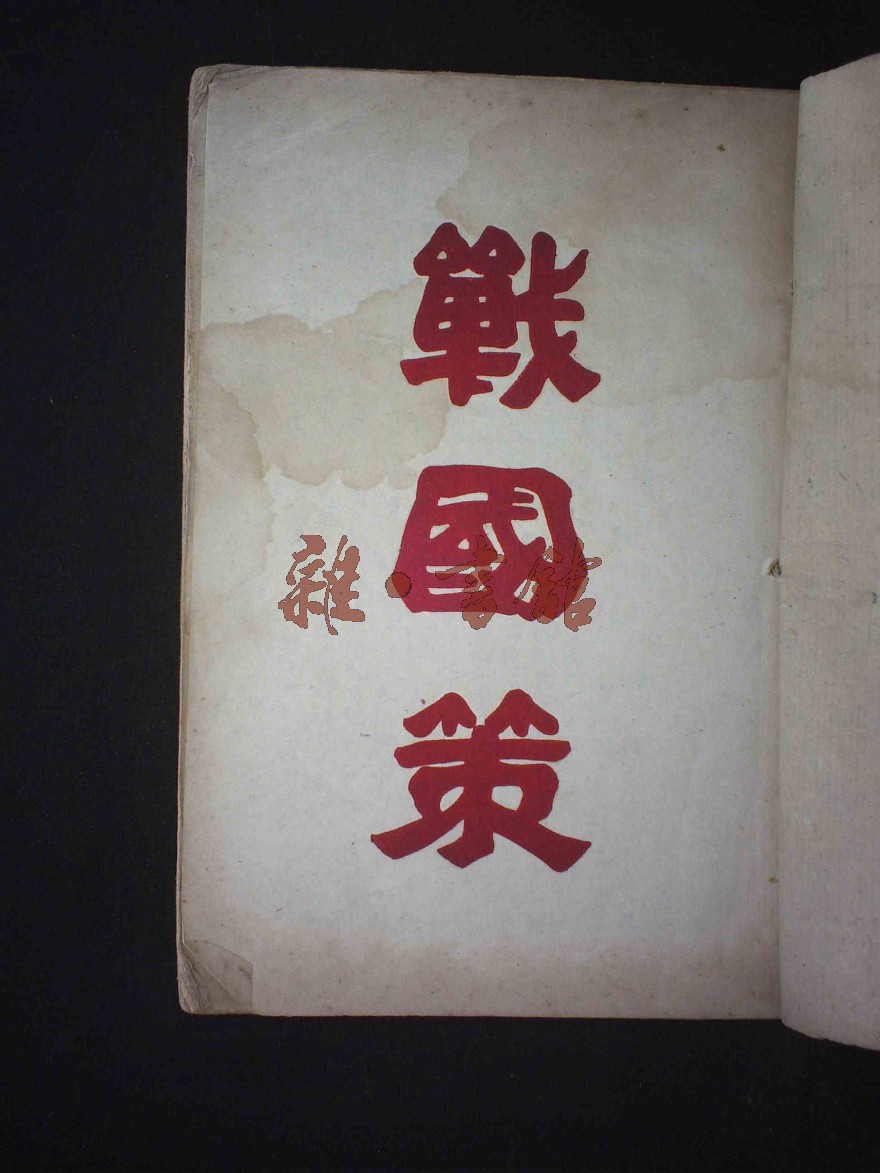 戰國策
雜·書館